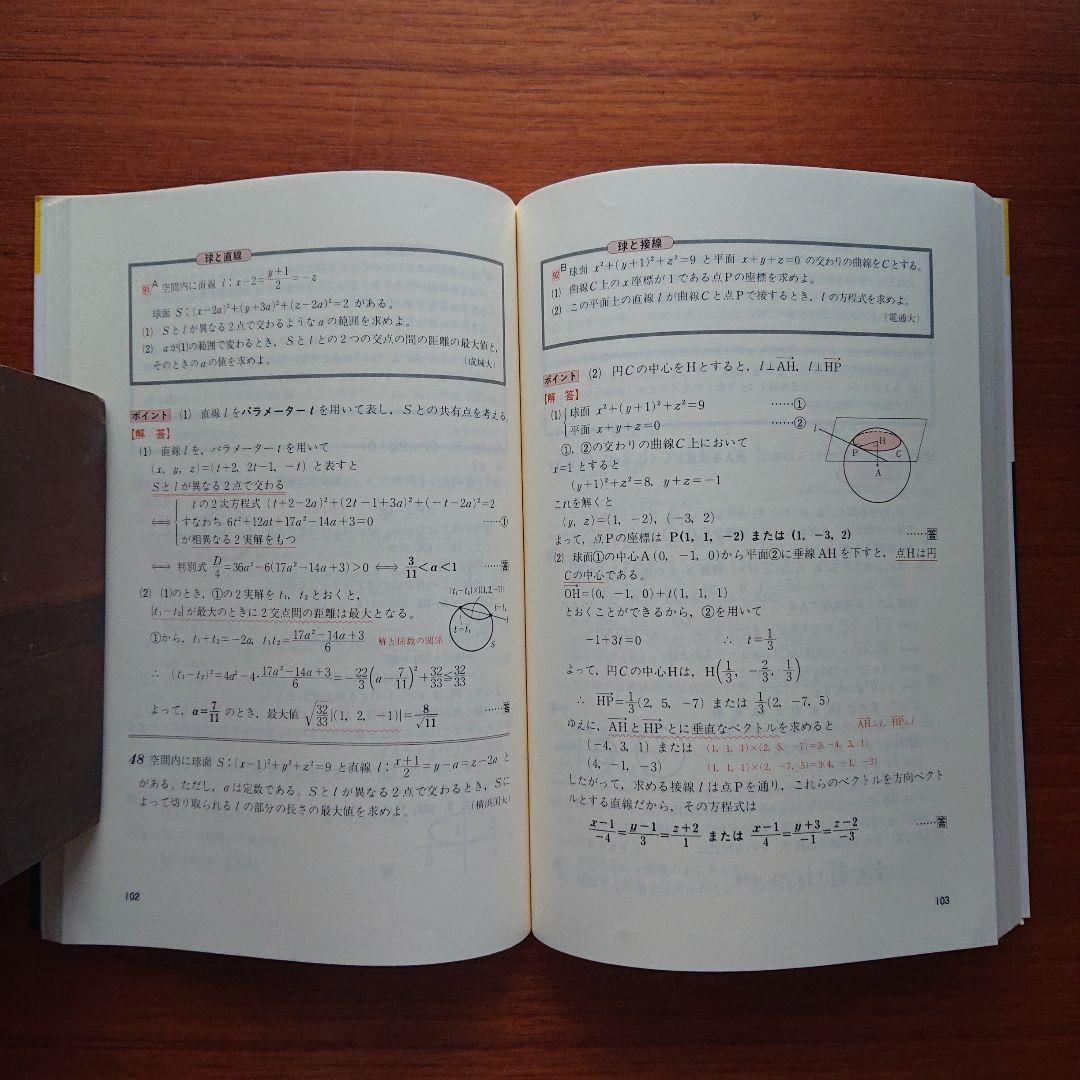 球と直線
91 A 空間内に直線 l：x−2=(y+1)/2=−z
球面 S：(x−2a)²+(y+3a)²+(z−2a)²=2 がある。
(1) Sとlが異なる2点で交わるようなaの範囲を求めよ。
(2) aが(1)の範囲で変わるとき，Sとlとの2つの交点の間の距離の最大値と，
そのときのaの値を求めよ。 (成城大)
ポイント (1) 直線lをパラメーターtを用いて表し，Sとの共有点を考える
【解 答】
(1) 直線lを，パラメーターtを用いて
(x, y, z)=(t+2, 2t−1, −t) と表すと
Sとlが異なる2点で交わる
tの2次方程式 (t+2−2a)²+(2t−1+3a)²+(−t−2a)²=2
⟺ すなわち 6t²+12at+17a²−14a+3=0 ……①
が相異なる2実解をもつ
⟺ 判別式 D/4=36a²−6(17a²−14a+3)>0 ⟺ 3/11<a<1 ……答
(2) (1)のとき，①の2実解を t₁, t₂とおくと，
|t₁−t₂|が最大のときに2交点間の距離は最大となる。
|t₁−t₂|×|(1,2,−1)|
t=t₁
t=t₂
l
S
①から，t₁+t₂=−2a, t₁t₂=(17a²−14a+3)/6 解と係数の関係
∴ (t₁−t₂)²=4a²−4·(17a²−14a+3)/6=−22/3(a−7/11)²+32/33≦32/33
よって，a=7/11 のとき，最大値 √(32/33)|(1, 2, −1)|=8/√11 ……答
48 空間内に球面 S：(x−1)²+y²+z²=9 と直線 l：(x+1)/2=y−a=z−2a と
がある。ただし，aは定数である。Sとlが異なる2点で交わるとき，Sに
よって切り取られるlの部分の長さの最大値を求めよ。 (横浜国大)
102
球と接線
92 B 球面 x²+(y+1)²+z²=9 と平面 x+y+z=0 の交わりの曲線をCとする。
(1) 曲線C上のx座標が1である点Pの座標を求めよ。
(2) この平面上の直線lが曲線Cと点Pで接するとき，lの方程式を求めよ。
(電通大)
ポイント (2) 円Cの中心をHとすると，l⊥AH，l⊥HP
【解 答】
(1) 球面 x²+(y+1)²+z²=9 ……①
平面 x+y+z=0 ……②
①，②の交わりの曲線C上において
x=1 とすると
(y+1)²+z²=8，y+z=−1
これを解くと
(y, z)=(1, −2), (−3, 2)
l
H
P
C
A
よって，点Pの座標は P(1, 1, −2) または (1, −3, 2) ……答
(2) 球面①の中心A(0, −1, 0)から平面②に垂線AHを下すと，点Hは円
Cの中心である。
OH=(0, −1, 0)+t(1, 1, 1)
とおくことができるから，②を用いて
−1+3t=0 ∴ t=1/3
よって，円Cの中心Hは，H(1/3, −2/3, 1/3)
∴ HP=1/3(2, 5, −7) または 1/3(2, −7, 5)
ゆえに，AHとHPとに垂直なベクトルを求めると AH⊥l, HP⊥l
(−4, 3, 1) または (1, 1, 1)×(2, 5, −7)=3(−4, 3, 1)
(4, −1, −3) (1, 1, 1)×(2, −7, 5)=3(4, −1, −3)
したがって，求める接線lは点Pを通り，これらのベクトルを方向ベクト
ルとする直線だから，その方程式は
(x−1)/−4=(y−1)/3=(z+2)/1 または (x−1)/4=(y+3)/−1=(z−2)/−3 ……答
103